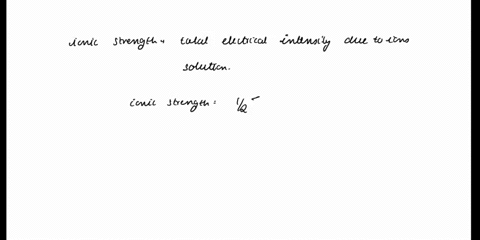 ionic strength = total electrical intensity due to ions
solution.
ionic strength = 1/2